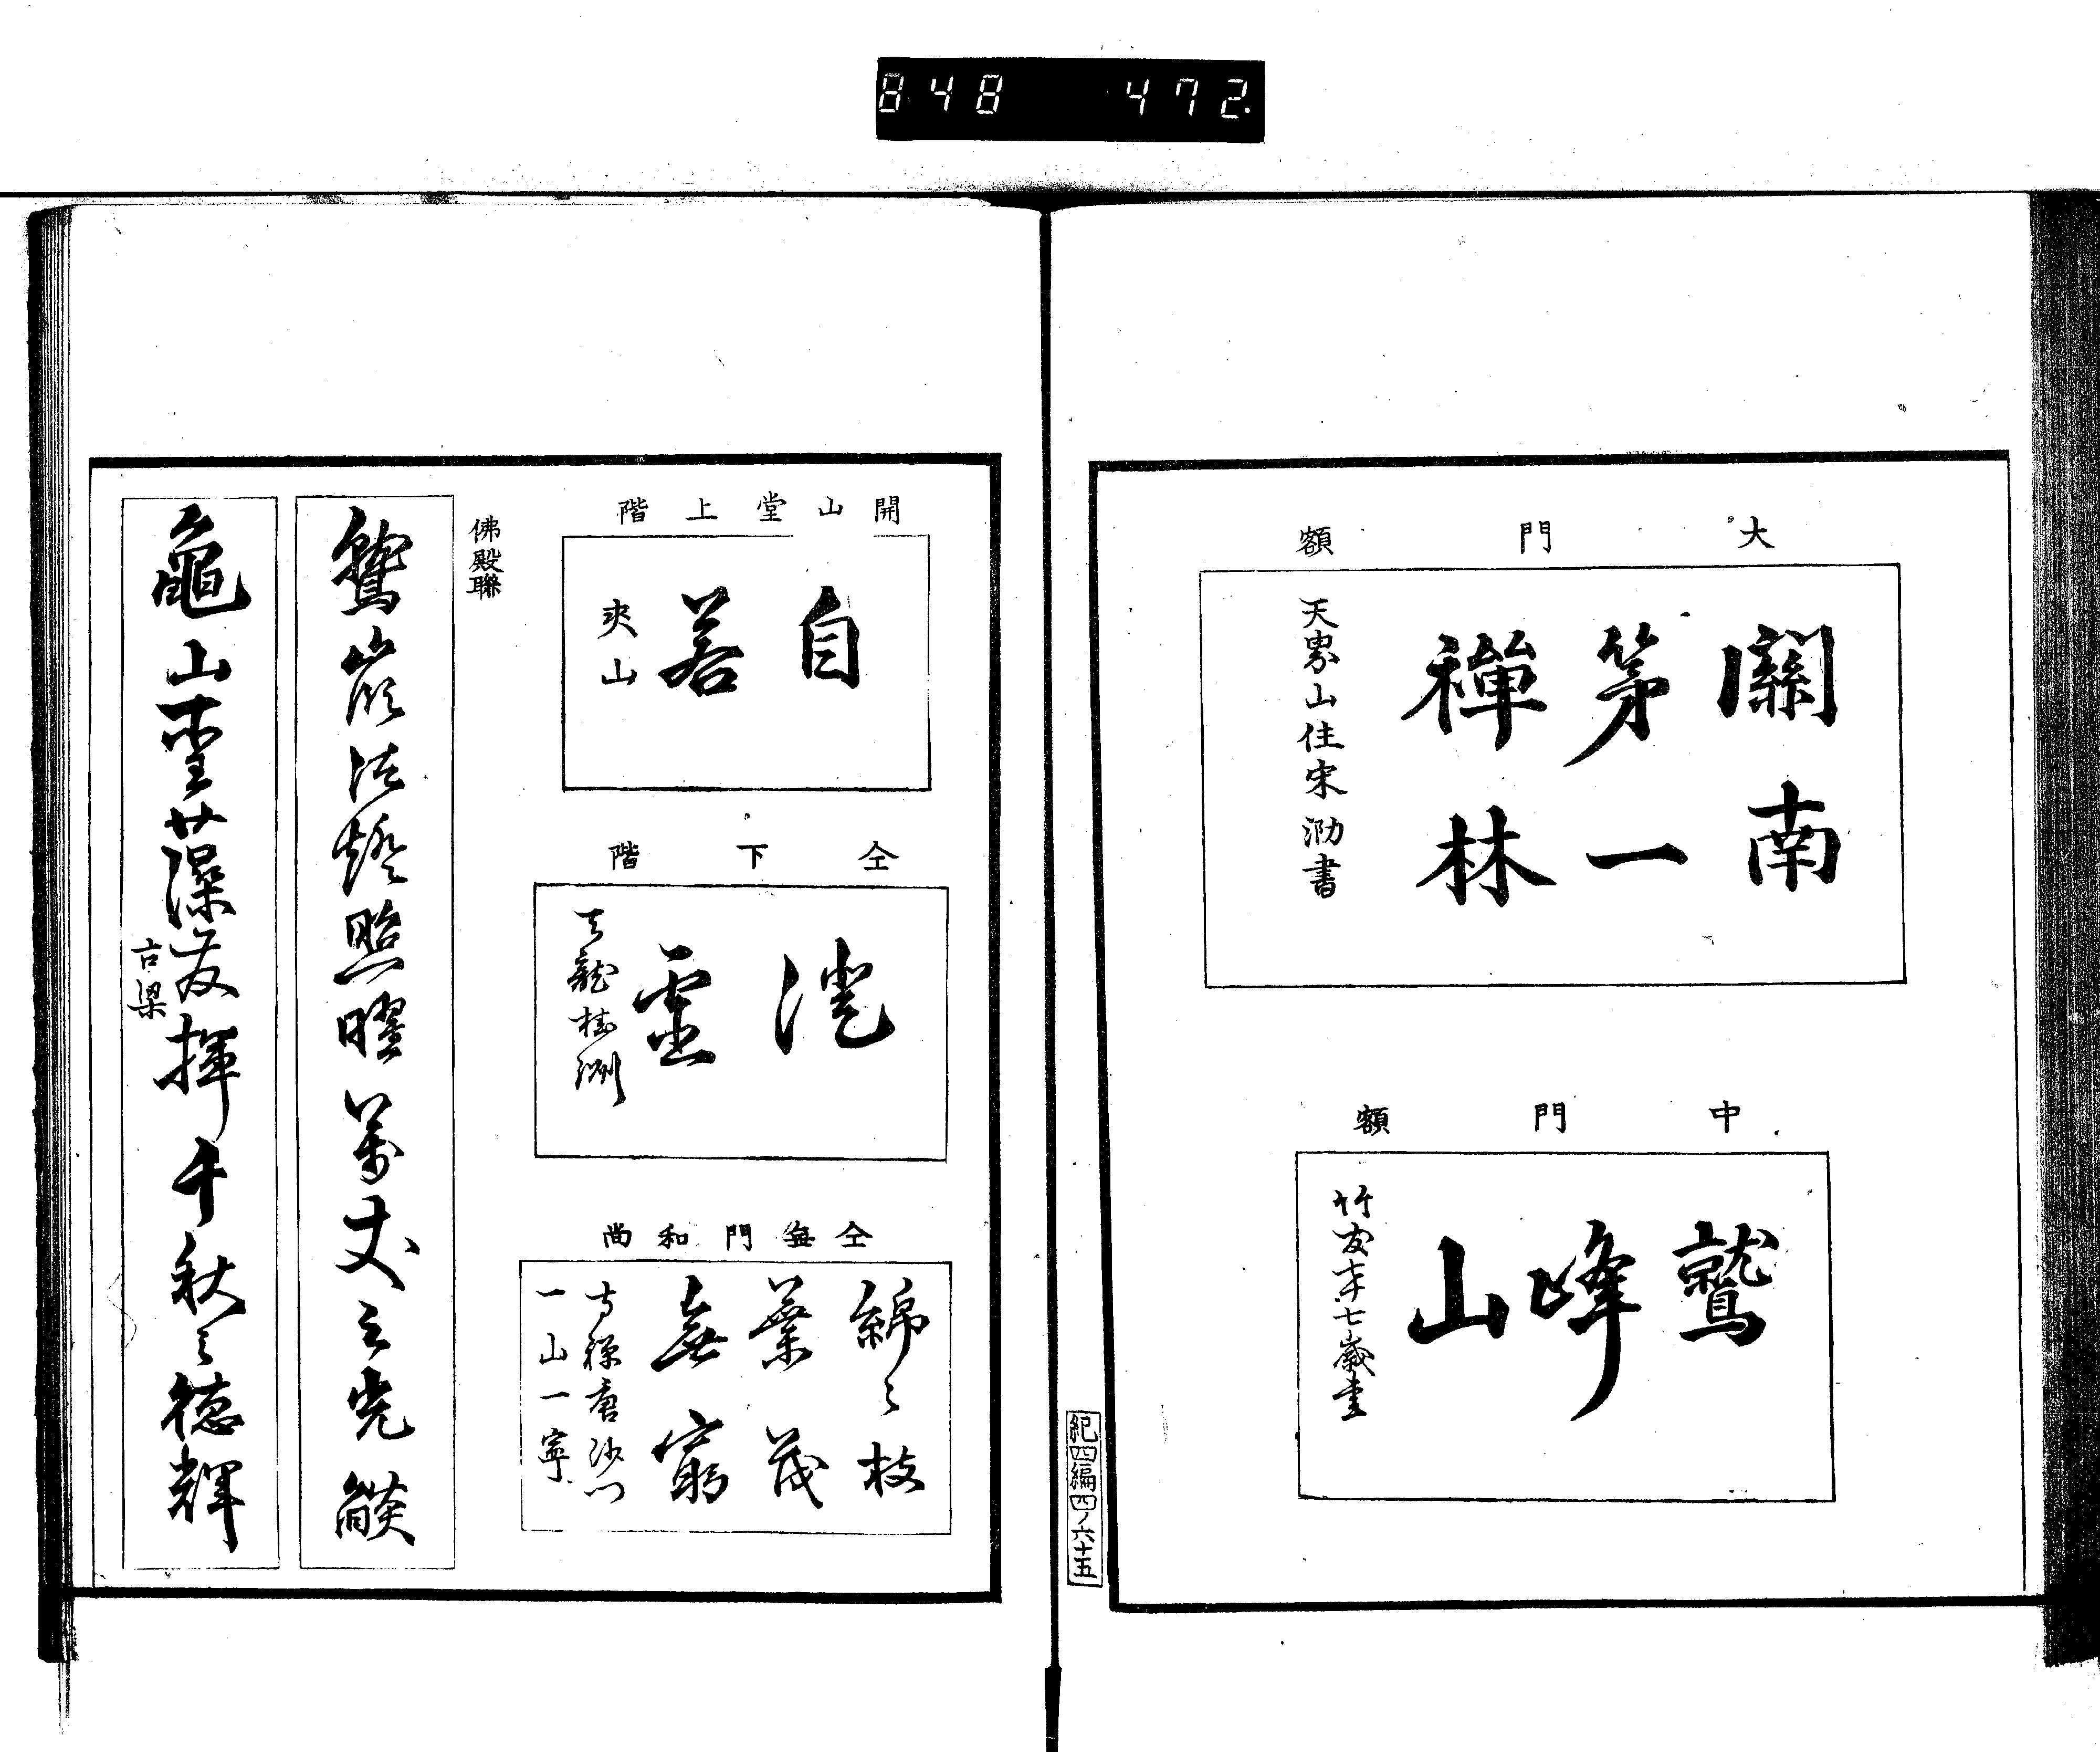 848 472
大門額
關南
第一
禪林
天界山住宋泐書
中門額
鷲峰山
竹友七歲書
紀四編四ノ六十五
開山堂上階
自若
夾山
仝下階
澄靈
天龍桂洲
仝無門和尚
綿〻枝
葉茂
無窮
古禪唐沙門
一山一寧
佛殿聯
鷲嶺法燈照曜萬丈之光燄
龜山靈藻發揮千秋之德輝
古梁